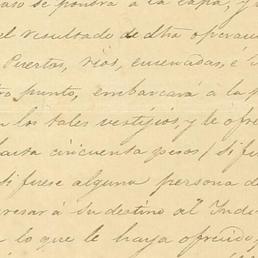 se pondra à la capa, y
el resultado de dha operacion
Puertos, rios, ensenadas, é
punto, embarcará a la p
n los tales vestigios, y le ofre
hasta cincuenta pesos (si fu
si fuese alguna persona d
gresar á su destino al Indi
lo que le haya ofrecido,